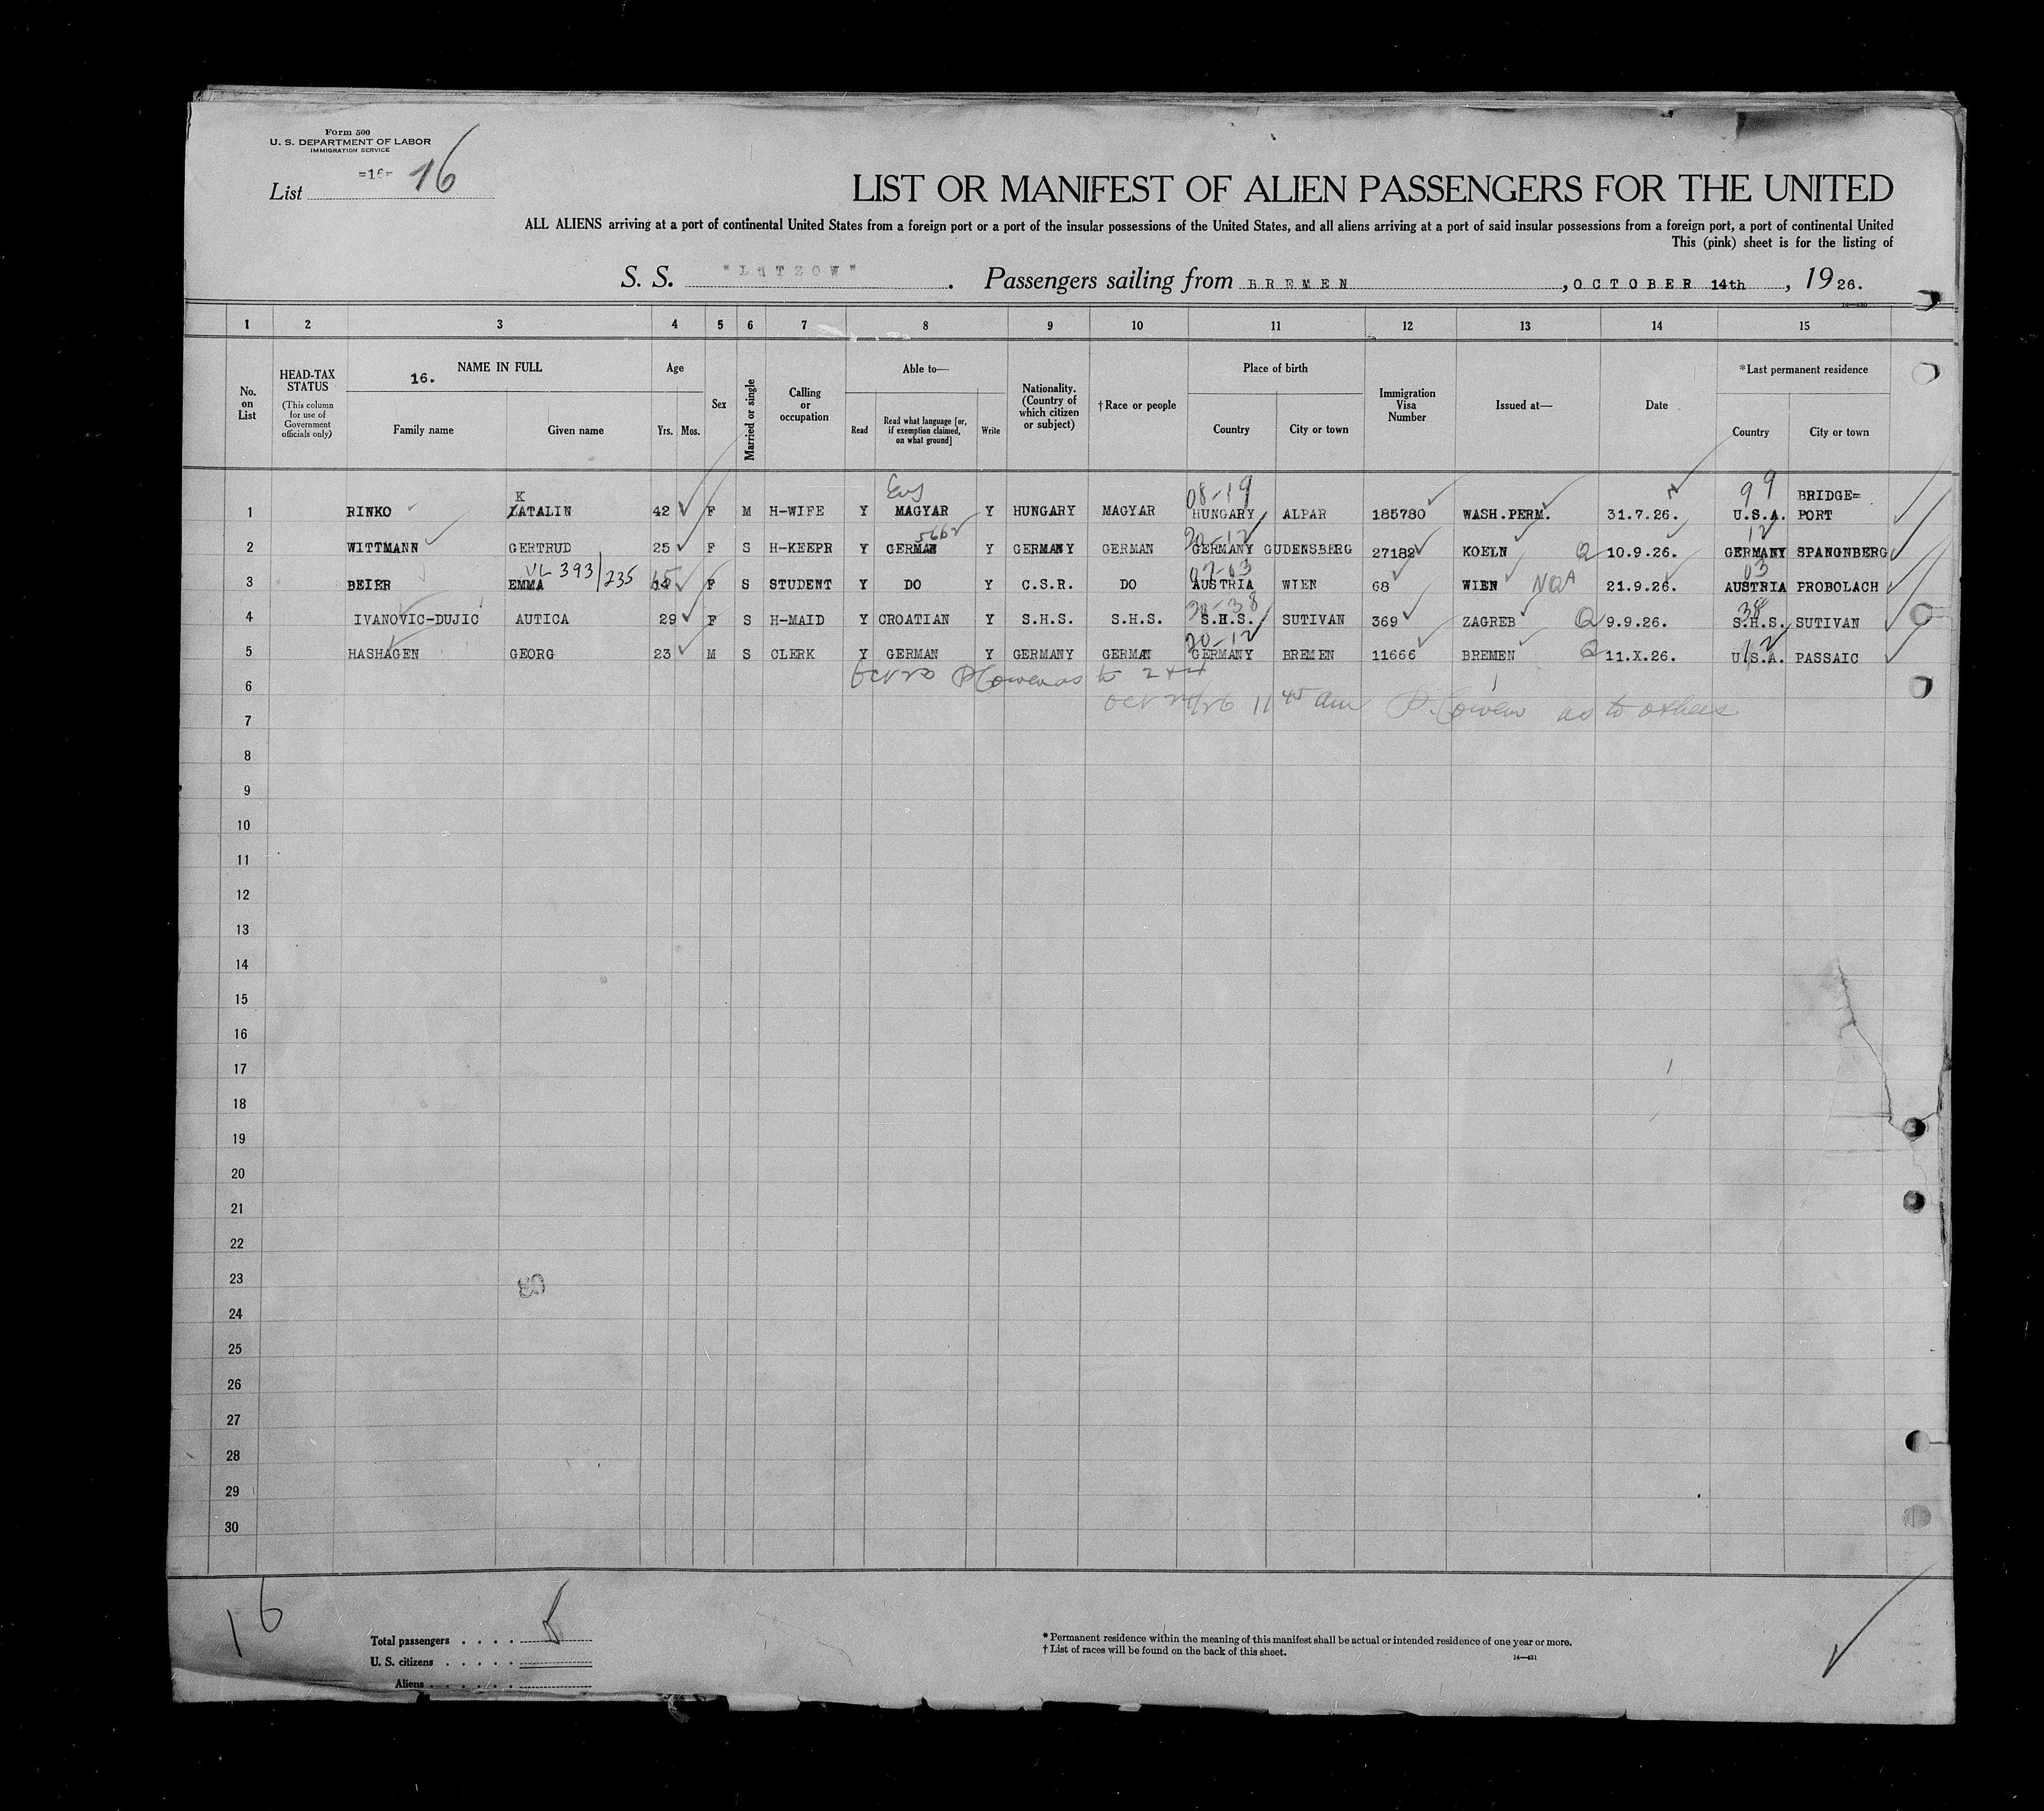 Form 500
U. S. DEPARTMENT OF LABOR
IMMIGRATION SERVICE
List =16= 16
LIST OR MANIFEST OF ALIEN PASSENGERS FOR THE UNITED
ALL ALIENS arriving at a port of continental United States from a foreign port or a port of the insular possessions of the United States, and all aliens arriving at a port of said insular possessions from a foreign port, a port of continental United
This (pink) sheet is for the listing of
S. S. "LUTZOW". Passengers sailing from BREMEN, OCTOBER 14th, 1926.
1 2 3 4 5 6 7 8 9 10 11 12 13 14 15
No. on List HEAD-TAX STATUS (This column for use of Government officials only) NAME IN FULL 16. Family name Given name Age Yrs. Mos. Sex Married or single Calling or occupation Able to— Read Read what language [or, if exemption claimed, on what ground] Write Nationality. (Country of which citizen or subject) †Race or people Place of birth Country City or town Immigration Visa Number Issued at— Date *Last permanent residence Country City or town
K 08-19 99 BRIDGE=
1 RINKO ATALIN 42 F M H-WIFE Y MAGYAR Y HUNGARY MAGYAR HUNGARY ALPAR 185780 WASH.PERM. 31.7.26. U.S.A. PORT
20-12 12
2 WITTMANN GERTRUD 25 F S H-KEEPR Y GERMAN Y GERMANY GERMAN GERMANY GUDENSBERG 27182 KOELN Q 10.9.26. GERMANY SPANGNBERG
VL 393/235 07-03 03
3 BEIER EMMA 14 F S STUDENT Y DO Y C.S.R. DO AUSTRIA WIEN 68 WIEN NQA 21.9.26. AUSTRIA PROBOLACH
20-38 38
4 IVANOVIC-DUJIC AUTICA 29 F S H-MAID Y CROATIAN Y S.H.S. S.H.S. S.H.S. SUTIVAN 369 ZAGREB Q 9.9.26. S.H.S. SUTIVAN
20-12 12
5 HASHAGEN GEORG 23 M S CLERK Y GERMAN Y GERMANY GERMAN GERMANY BREMEN 11666 BREMEN Q 11.X.26. U.S.A. PASSAIC
6 Oct 20 P Cowen as to 2 + 4
7 Oct 26 11 45 am P. Cowen as to others
8
9
10
11
12
13
14
15
16
17
18
19
20
21
22
23
24
25
26
27
28
29
30
16
Total passengers
U. S. citizens
Aliens
* Permanent residence within the meaning of this manifest shall be actual or intended residence of one year or more.
† List of races will be found on the back of this sheet.
14—431